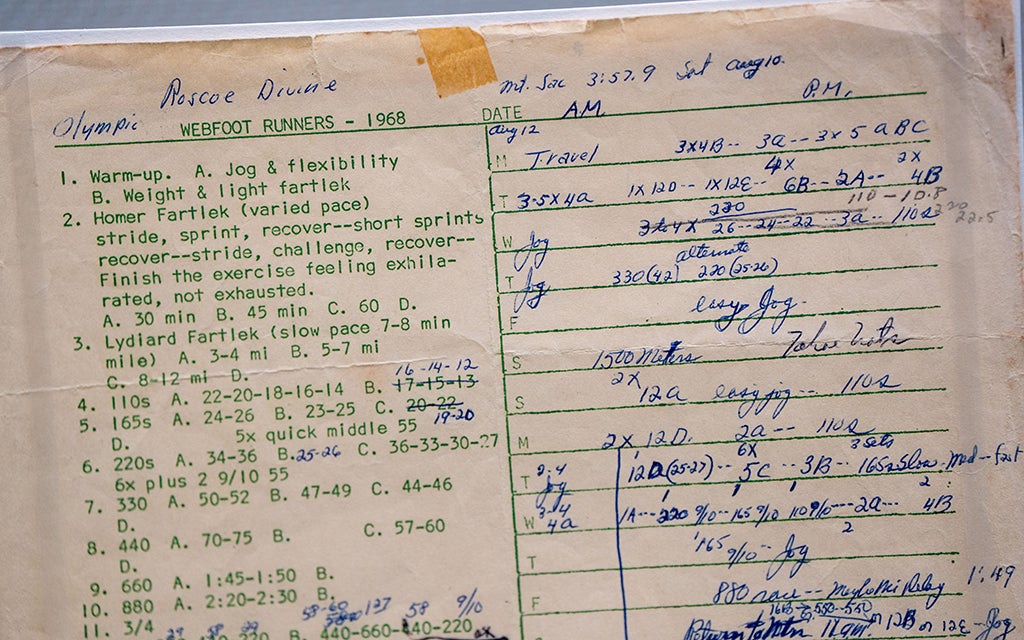 Roscoe Divine
mt. Sac 3:57.9 Sat aug 10.
Olympic WEBFOOT RUNNERS - 1968
DATE A.M. P.M.
1. Warm-up. A. Jog & flexibility
B. Weight & light fartlek
2. Homer Fartlek (varied pace)
stride, sprint, recover--short sprints
recover--stride, challenge, recover--
Finish the exercise feeling exhila-
rated, not exhausted.
A. 30 min B. 45 min C. 60 D.
3. Lydiard Fartlek (slow pace 7-8 min
mile) A. 3-4 mi B. 5-7 mi
C. 8-12 mi D.
16-14-12
4. 110s A. 22-20-18-16-14 B. 17-15-13
5. 165s A. 24-26 B. 23-25 C. 20-22
19-20
D. 5x quick middle 55
6. 220s A. 34-36 B. 25-26 C. 36-33-30-27
6x plus 2 9/10 55
7. 330 A. 50-52 B. 47-49 C. 44-46
D.
8. 440 A. 70-75 B. C. 57-60
D.
9. 660 A. 1:45-1:50 B.
10. 880 A. 2:20-2:30 B.
58 9/10
11. 3/4 B. 440-660-440-220
aug 12
M Travel 3x4B-- 3a--3x5 a BC
4x 2x
T 3-5x4a 1x12D--1x12E-- 6B--2A-- 4B
220 110-10.8
W Jog 4x 26--24--22--3a--110s 22.5
alternate
T Jog 330(42) 220(25-26)
F easy Jog.
S 1500 Meters
2x
S 12a easy jog-- 110s
M 2x12D. 2a-- 110s
6x 3 sets
T 2-4 Jog 12D(25-27)-- 5C--3B--165s Slow-Med-fast
2
W 3-4 4a 1A---220 9/10--165 9/10 110 9/10---2a--- 4B
2
T 165 9/10-- Jog
F 880 race-- Relay 1:49
12B or 12E-Jog